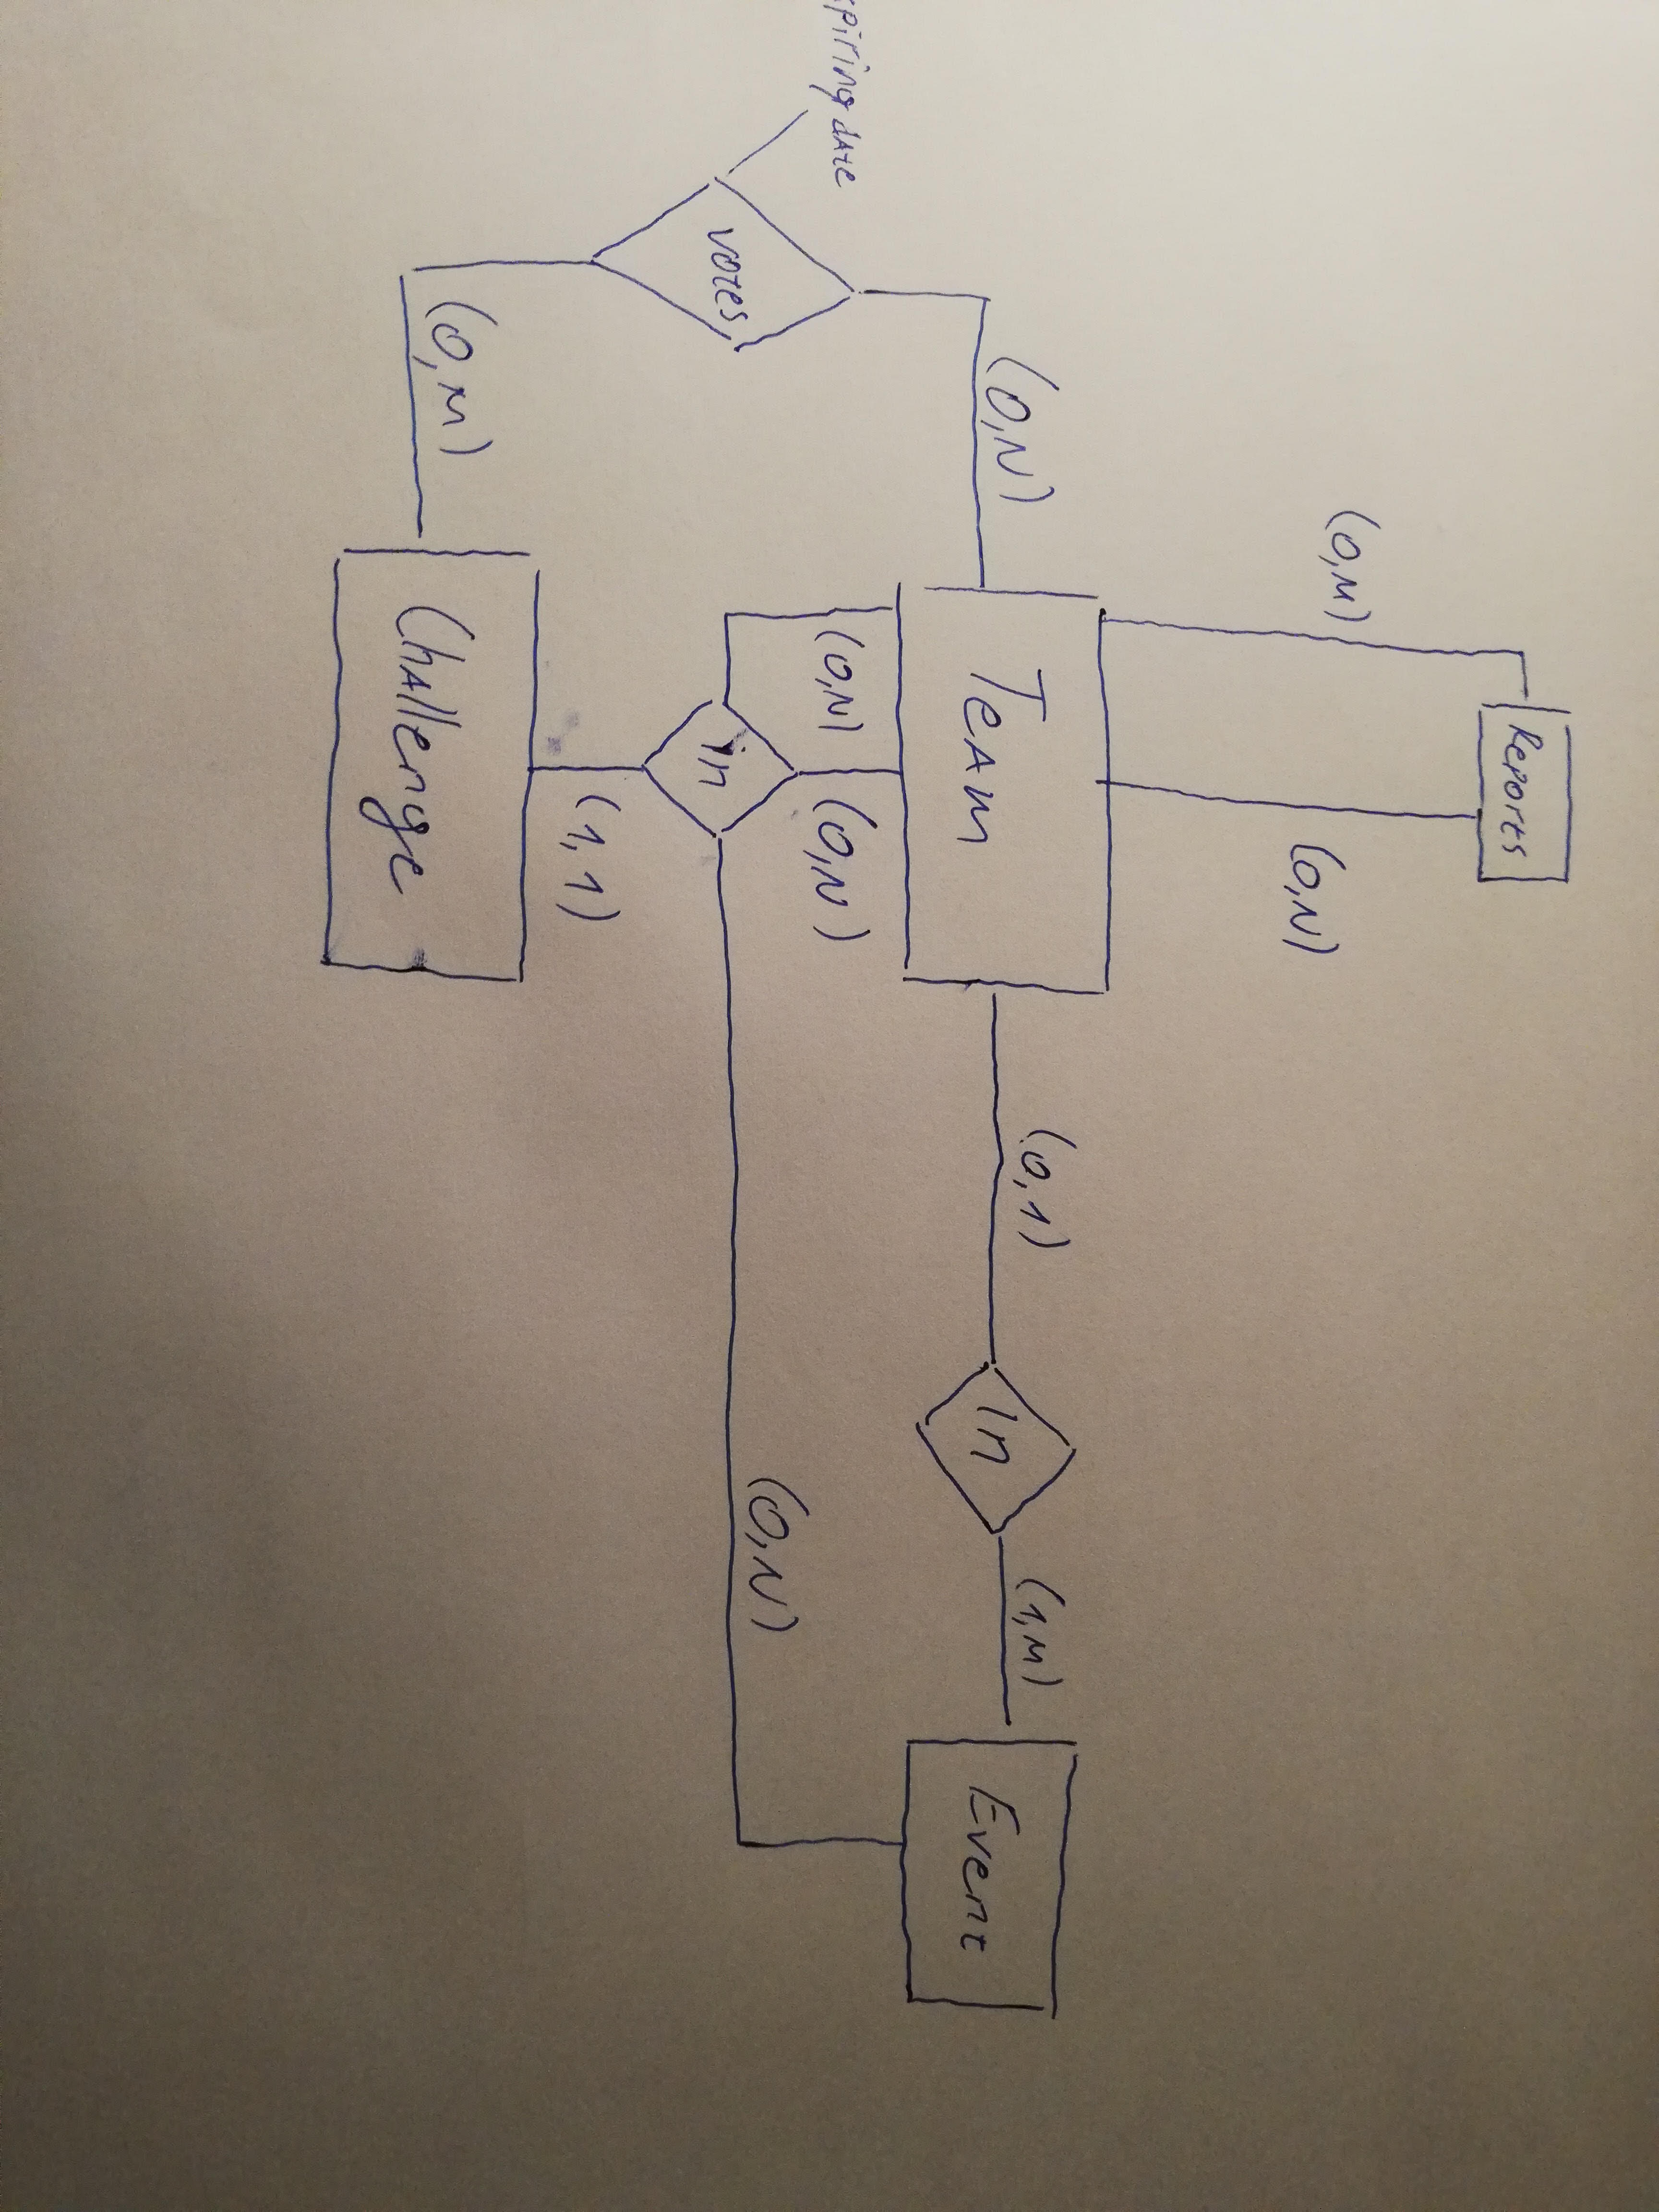 Reports
(0,M)
(0,N)
(0,N)
Team
(0,1)
In
(1,M)
Event
piring date
(0,N)
(0,N)
(0,N)
votes
in
(1,1)
(0,M)
Challenge